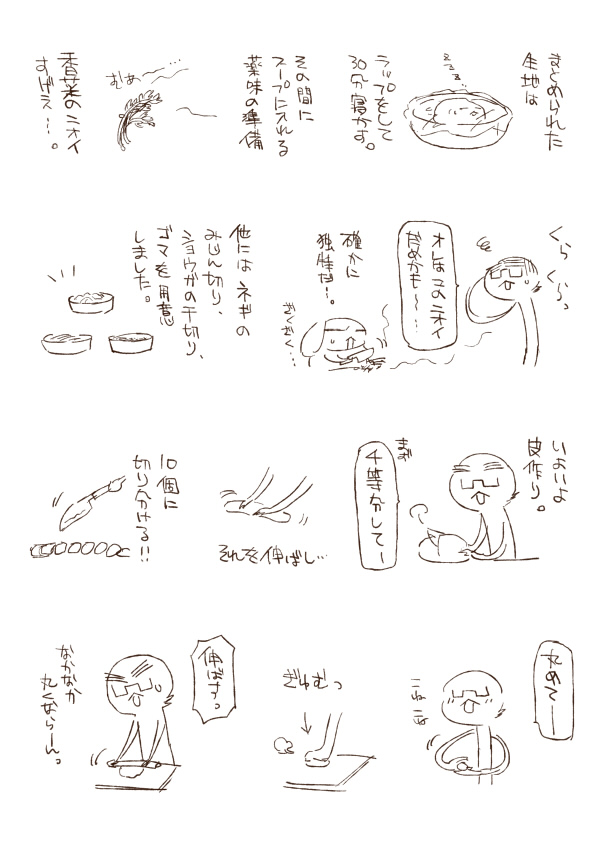 まとめられた
生地は
zzz..
ラップをして
30分寝かす。
その間に
スープに入れる
薬味の準備
むあ
香菜のニオイ
すげえ…。
くら
くらっ
オレはこのニオイ
だめかも〜…
確かに
独特だ…。
ざくざく…
他にはネギの
みじん切り、
ショウガの千切り、
ゴマを用意
しました。
いよいよ
皮作り。
まず
4等分してー
それを伸ばし…
10個に
切り分ける!!
丸めてー
こね
こね
ぎゅむっ
伸ばすっ
なかなか
丸くならーん。